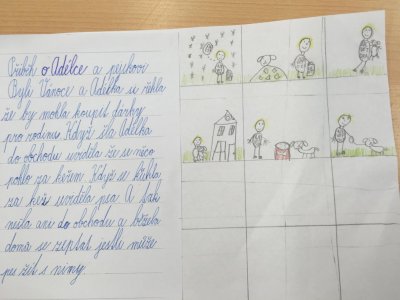 Příběh o Adélce a pejskovi
Byli Vánoce a Adélka si řekla
že by mohla koupit dárky
pro rodinu. Když šla Adélka
do obchodu uviděla že se něco
pohlo za keřem. Když se kouhla
za keř uviděla psa. A tak
nešla ani do obchodu a běžela
domů se zeptat jestli může
pes žít s nimy.